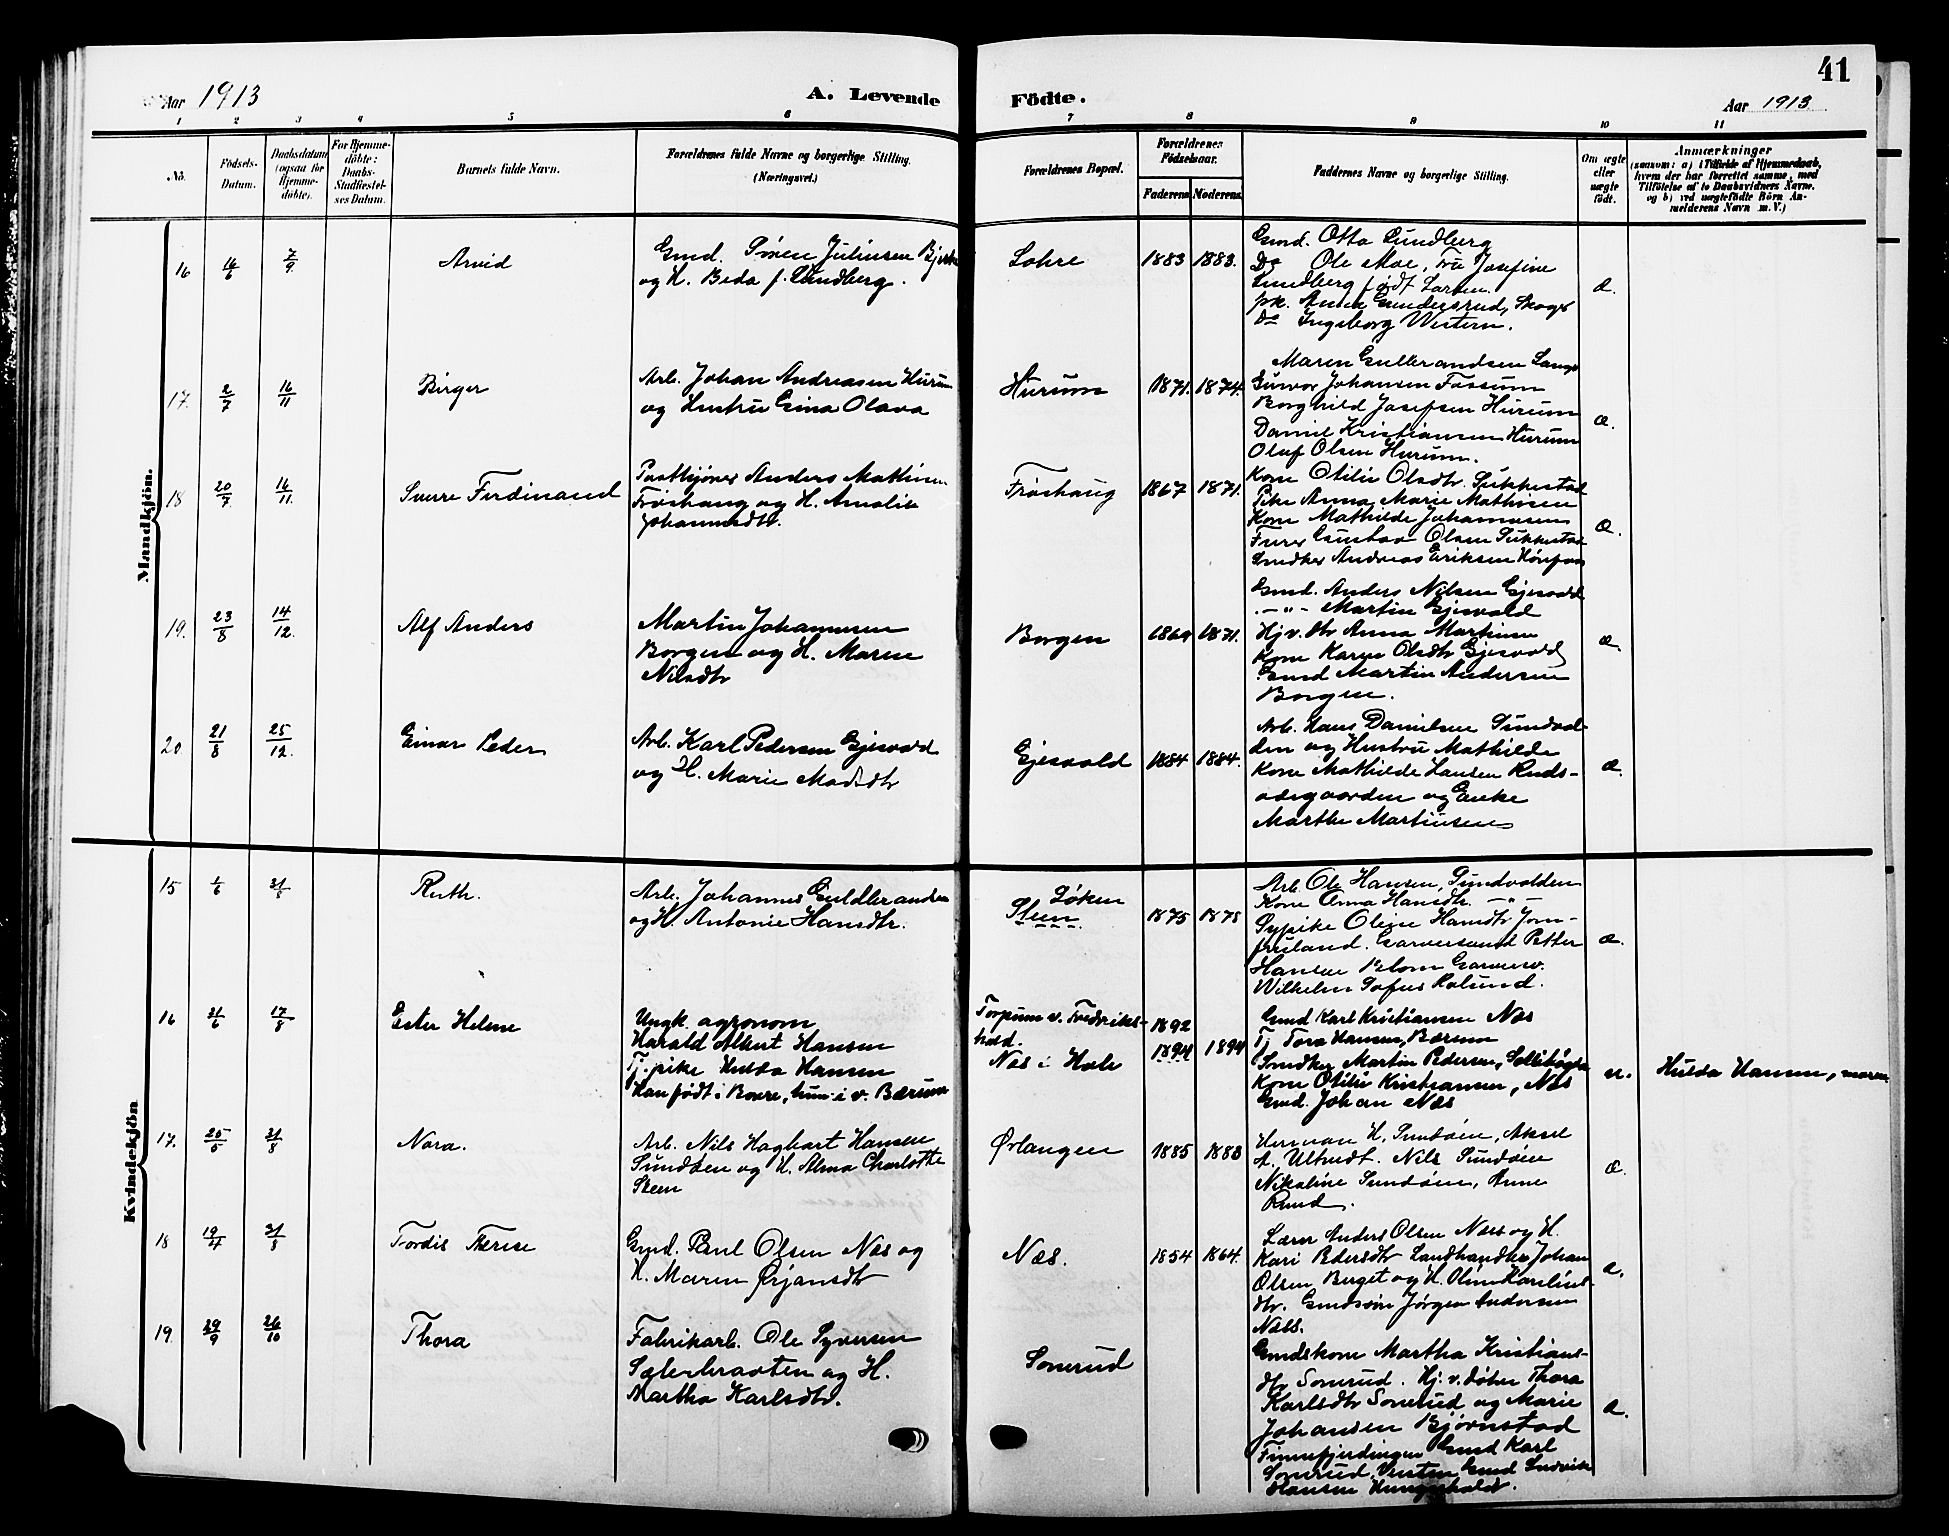 Aar 1913
A. Levende
Födte.
41
Aar 1913
1 2 3 4 5 6 7 8 9 10 11
No.
Födsels-
Datum.
Daabsdatum
(ogsaa for
Hjemme-
döbte).
For Hjemme-
döbte:
Daabs-
Stadfæstel-
ses Datum.
Barnets fulde Navn.
Forældrenes fulde Navne og borgerlige Stilling.
(Næringsvei.)
Forældrenes Bopæl.
Forældrenes
Födselsaar.
Faderens Moderens
Faddernes Navne og borgerlige Stilling.
Om ægte
eller
uægte
födt.
Anmærkninger
(saasom: a) i Tilfælde af Hjemmedaab,
hvem der har forrettet samme, med
Tilföielse af to Daabsvidners Navne.
og b) ved uægtefödte Börn An-
melderens Navn m. V.)
Mandkjön.
16
7/9
Arvid
Gmd. Søren Juliusen
og H. Beda f. Lundberg.
Lohre
1883 1883.
Gmd. Otto Lundberg
Do Ole Moe, Fru Josefine
Lundberg født Larsen.
pk. Anna Gundersrud, Skoger
Do Ingeborg Western.
æ.
17.
2/7
16/11
Birger
Arb. Johan Andreasen Hurum
og Hustru Gina Olava
Hurum
1871. 1874.
Maren Gulbrandsen
Gunvor Johansen Fossum
Borghild Josefsen Hurum
Daniel Kristiansen Hurum
Oluf Olsen Hurum.
æ.
18
20/7
16/11.
Sverre Ferdinand
Anders Mathisen
Frøshaug og H. Amalie
Johannesdtr.
Frøshaug
1867 1871.
Kone Otilie Olsdtr. Sukkestad
Pike Anna Marie Mathisen
Kone Mathilde Johannesen
Gustav Olsen Sukkestad
Snedker Andreas Eriksen Hønefoss
æ.
19.
23/8
14/12.
Alf Anders
Martin Johannesen
Borgen og H. Maren
Nilsdtr
Borgen
1869 1871.
Gmd. Anders Nilsen Gjesvold
-"- Martin Gjesvold
Hjv. dtr Anna Martinsen
Kone Karen Olsdtr Gjesvold
Gmd Martin Andersen
Borgen.
æ.
20
21/8
25/12.
Einar Peder
Arb. Karl Pedersen Gjesvold
og H. Marie Madsdtr
Gjesvold
1884 1884.
Arb. Hans Danielsen Sundvol-
den og Hustru Mathilde
Kone Mathilde Hansen Ruds-
ødegaarden og Enke
Marthe Martinsen
æ.
Kvindekjön
15
1/6
31/8
Ruth.
Arb. Johannes Guldbrandsen
og H. Antonie Hansdtr.
Løken
Steen
1875 1878
Arb. Ole Hansen, Sundvolden
Kone Anna Hansdtr. -"-
Sypike Oline Hansdtr Jom-
fruland. Garversvend Petter
Hansen Blom Garversv.
Wilhelm Sofus Rolund.
æ.
16
21/6
17/8
Ester Helene
Ungk. agronom
Harald Albert Hansen
Tj. pike Hulda Hansen
Han født i Borre, hun i v. Bærum
Torpum v. Fredriks-
hald.
Næs i Hole
1892
1894 1894
Gmd Karl Kristiansen Næs
Tj Tora Hansen, Bærum
Snedker Martin Pedersen, Sollihøgda
Kone Otilie Kristiansen, Næs
Gmd. Johan Næs
u.
Hulda Hansen, moren
17.
25/5
31/8
Nora.
Arb. Nils Hagbart Hansen
Sundøen og H. Alma Charlotte
Steen
Ørlangen
1885 1883
Herman H. Sundøen, Aksel
A. Ultvedt. Nils Sundøen
Nikoline Sundøen, Anne
Rud.
æ.
18
19/4
31/8
Tordis Therese
Gmd. Paul Olsen Næs og
H. Maren Ørjansdtr
Næs.
1854 1864.
Anders Olsen Næs og H.
Kari Pedersdtr Landhandler Johan
Olsen Berget og H. Oline Karelius-
dtr. Gmdssøn Jørgen Andersen
Næs.
æ.
19.
29/9
26/10
Thora
Fabrikarb. Ole Syversen
Sætebraaten og H.
Martha Karlsdtr.
Sonerud
Gmdskone Martha Kristians-
dtr Sonerud. Hj. v. døtre Thora
Karlsdtr Sonerud og Marie
Johansen Bjørnstad
Finnefjerdingen Gmd Karl
Sonerud, Gmd Ludvik
Hansen
æ.